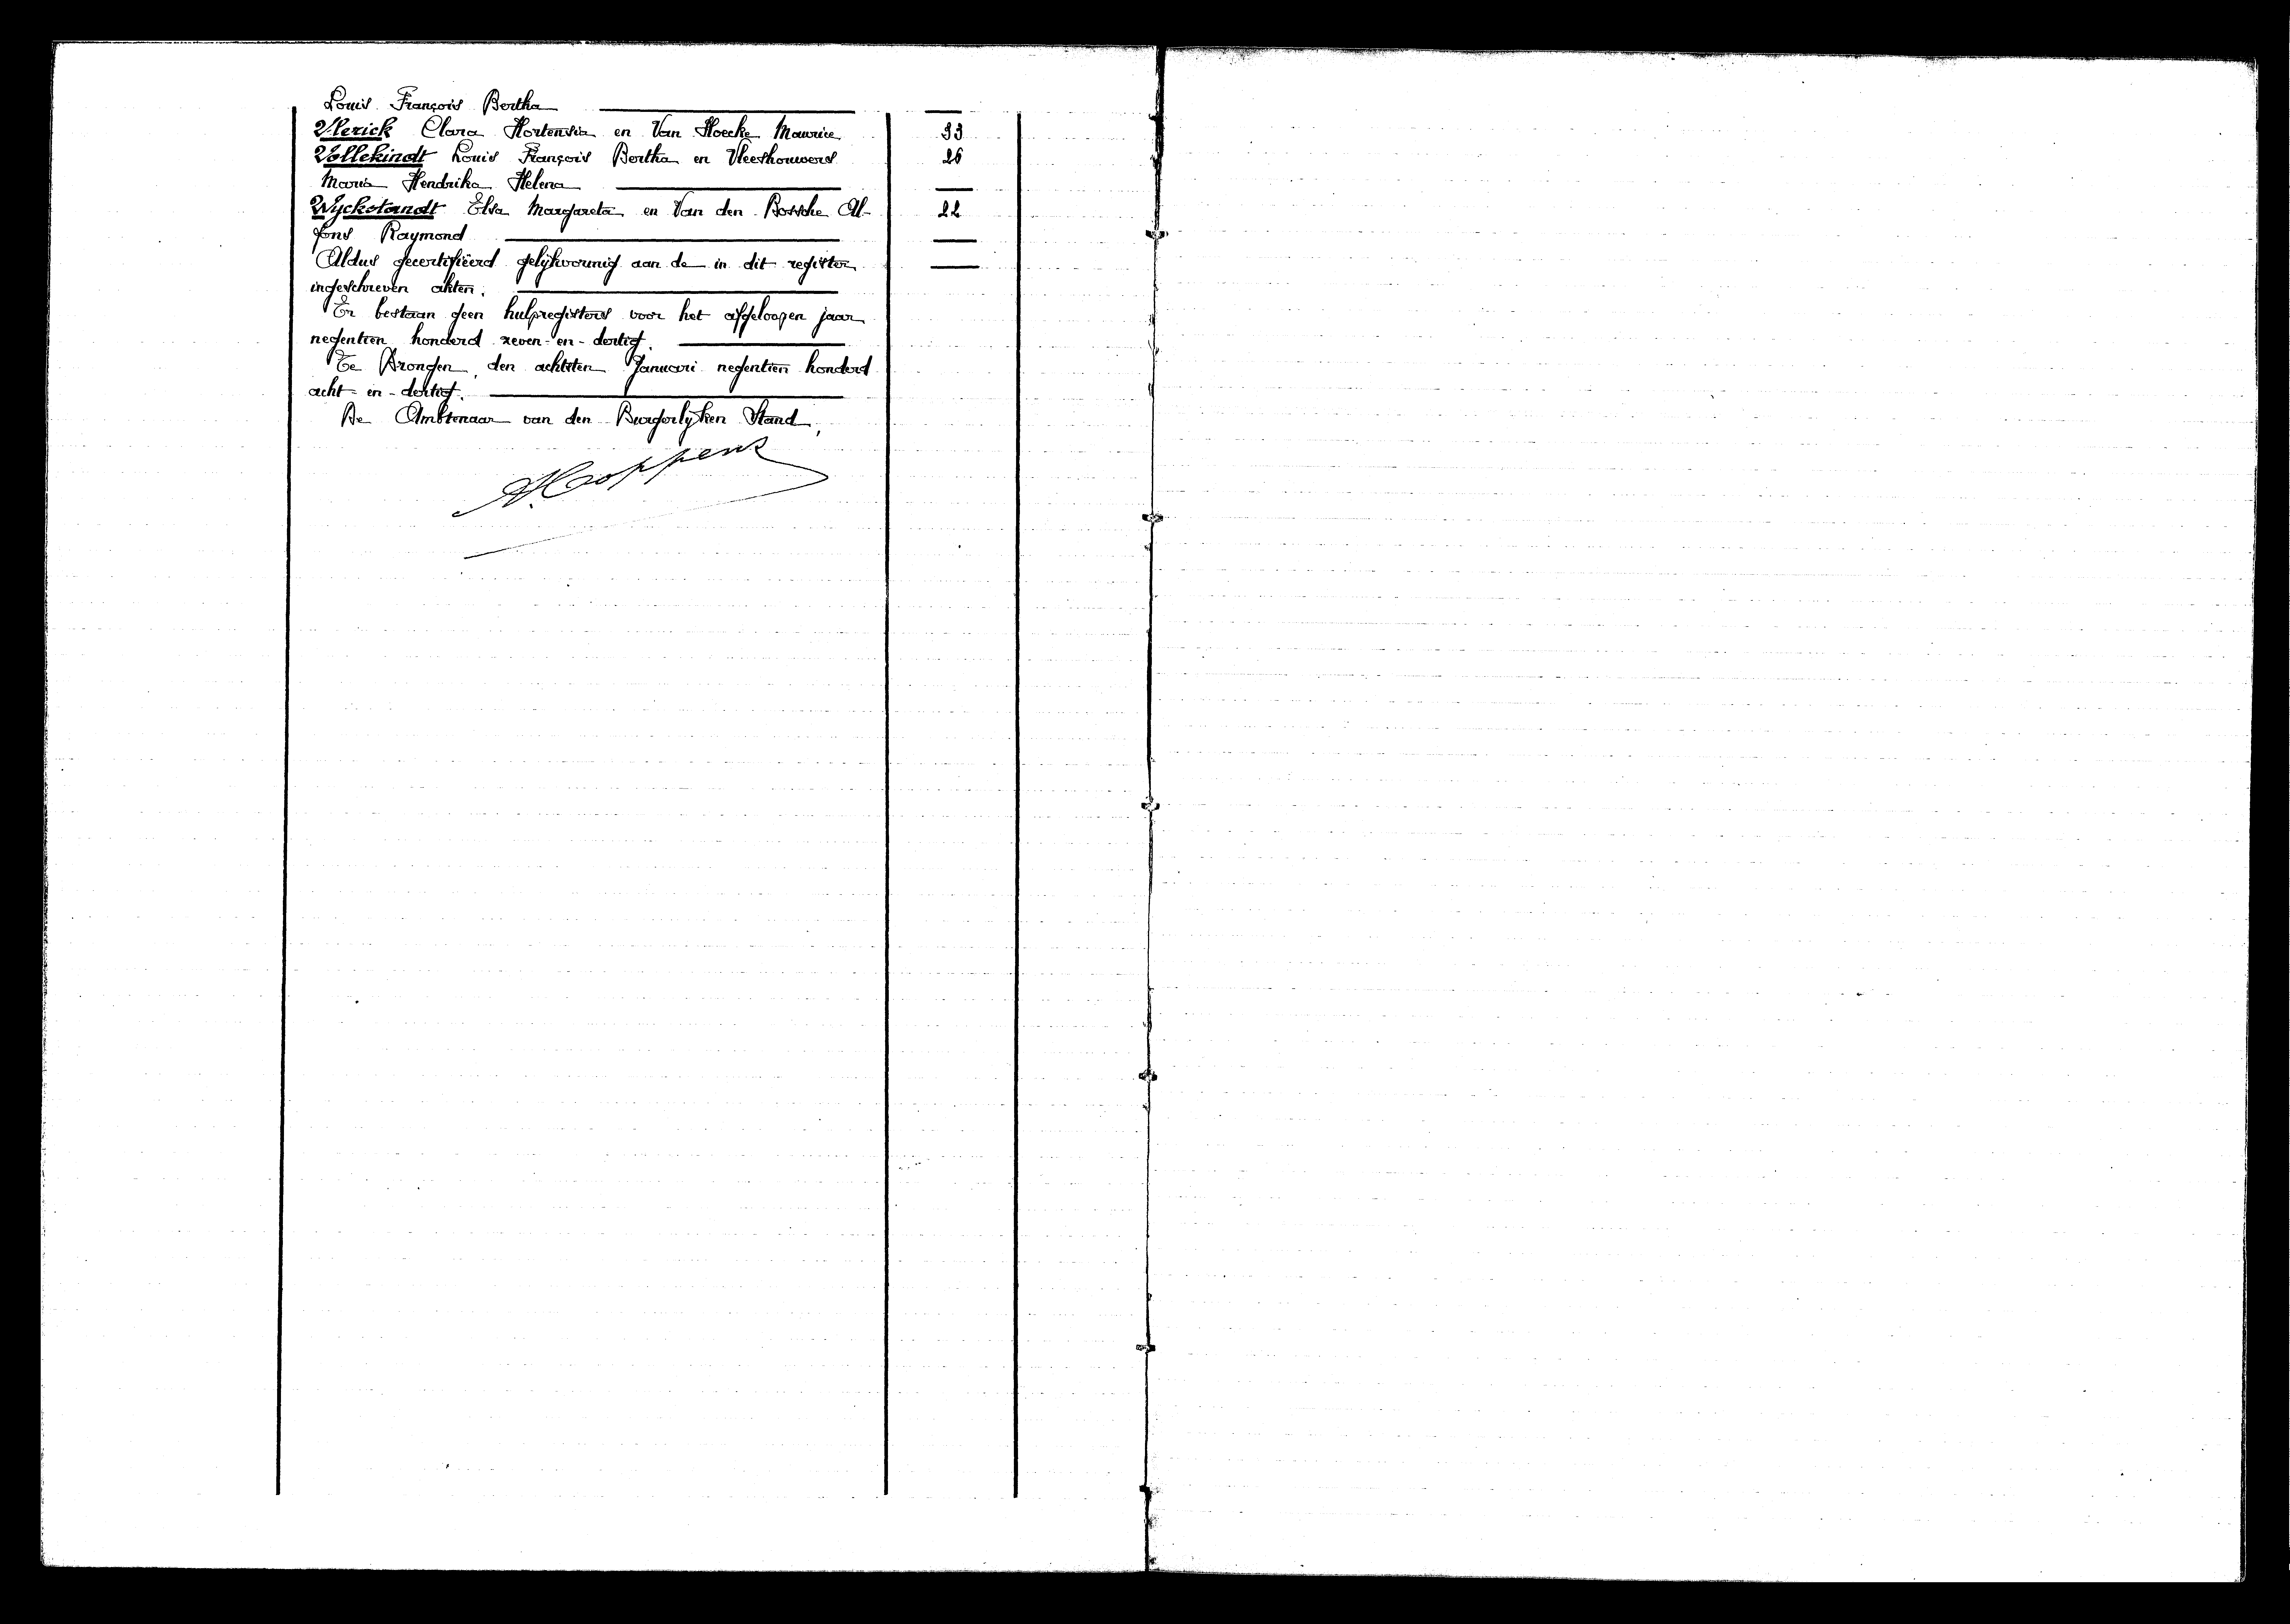 Louis François Bertha
Vlerick Clara Hortensia en Van Hoecke Maurice 33
Vollekindt Louis François Bertha en Vleeshouwers 26
Maria Hendrika Helena
Wyckstandt Elsa Margareta en Van den Bossche Al- 22
fons Raymond
Aldus gecertifiëerd gelijkvormig aan de in dit register
ingeschreven akten.
Er bestaan geen hulpregisters voor het afgeloopen jaar
negentien honderd zeven-en-dertig.
Te Drongen, den achtsten Januari negentien honderd
acht-en-dertig.
De Ambtenaar van den Burgerlyken Stand,
A. Coppens